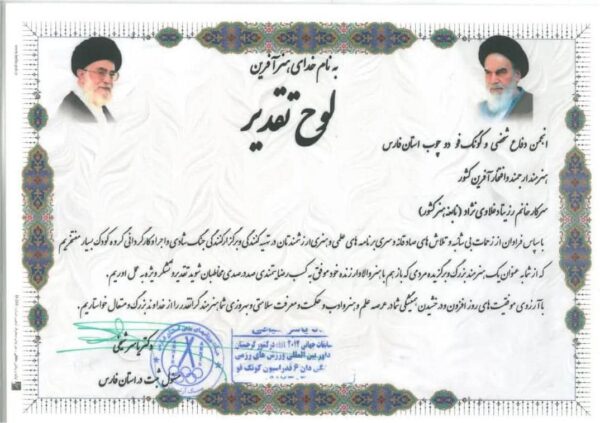 به نام خدای هنرآفرین
لوح تقدیر
انجمن دفاع شخصی و کونگ فو دو چوب استان فارس
هنرمند ارجمند و افتخار آفرین کشور
سرکار خانم رزیتا دغلاوی نژاد (نابغه هنر کشور)
با سپاس فراوان از زحمات بی شائبه و تلاش های صادقانه و سری برنامه های علمی و هنری ارزشمندتان در تهیه کنندگی و برگزار کنندگی جنگ شادی و اجرا و کارگردانی گروه کودک بسیار مفتخریم
که از شما به عنوان یک هنرمند بزرگ و برگزیده مردمی که باز هم با هنر والا و ارزنده خود موفق به کسب رضایتمندی صد در صدی مخاطبان شوید تقدیر و تشکر ویژه به عمل آوریم.
با آرزوی موفقیت های روز افزون و درخشیدن همیشگی شما در عرصه علم و هنر و ادب و حکمت و معرفت سلامتی و بهروزی شما هنرمند گرانقدر را از خداوند بزرگ و متعال خواستاریم.
مسابقات جهانی ۲۰۱۲ در کشور گرجستان
داور بین المللی ورزش های رزمی
دان ۶ فدراسیون کونگ فو
دکتر یاسر
مسئول ثبت در استان فارس